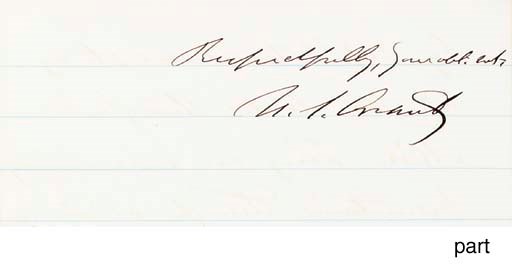 Respectfully, Your obt. svt.
U. S. Grant
part